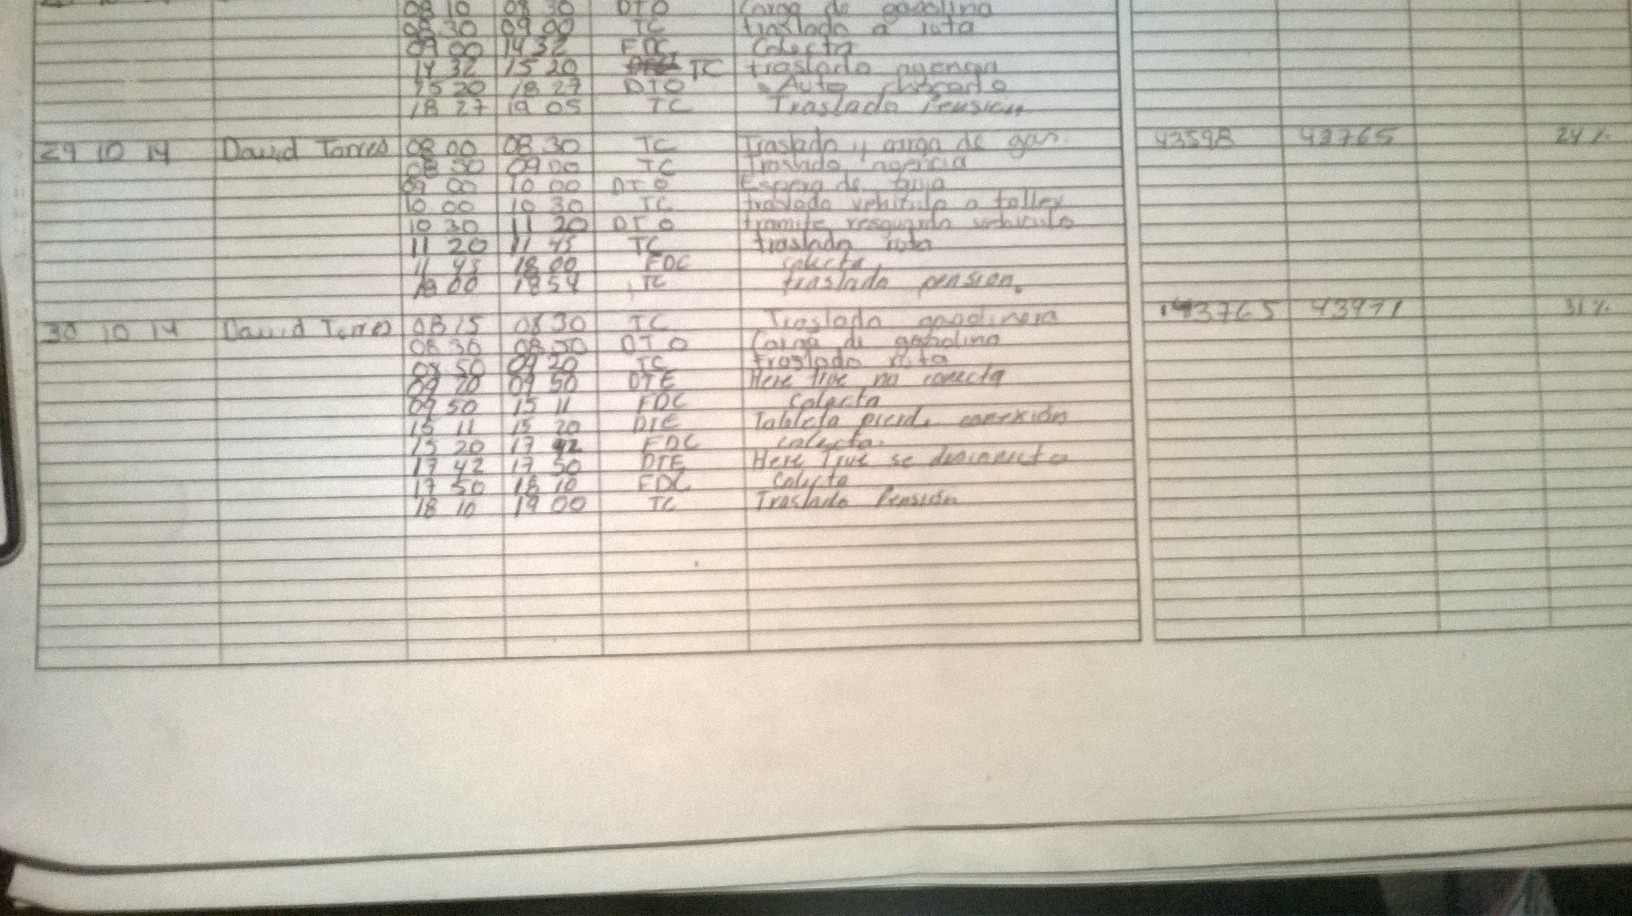 08 10 08 30 DTO Carga de gasolina
08 30 09 00 TC traslado a ruta
09 00 14 32 FDC Colecta
14 32 15 20 TC traslado agencia
15 20 18 27 DTO Auto chocado
18 27 19 05 TC Traslado Pension
29 10 14 David Torres 08 00 08 30 TC Traslado y carga de gas. 43598 43765 24%
08 30 09 00 TC Traslado agencia
09 00 10 00 DTO Espera de
10 00 10 30 TC traslado vehiculo a taller
10 30 11 20 DTO tramite resguardo vehiculo
11 20 11 45 TC traslado ruta
11 45 18 00 FDC colecta
18 00 18 54 TC traslado pension.
30 10 14 David Torres 08 15 08 30 TC Traslado gasolinera 43765 43971 31%
08 30 08 50 DTO Carga di gasolina
08 50 09 20 TC traslado ruta
09 20 09 50 DTE Here true no conecta
09 50 15 11 FDC Colecta
15 11 15 20 DTE Tableta pierde conexión
15 20 17 42 FDC colecta.
17 42 17 50 DTE Here True se desconecta
17 50 18 10 FDC Colecta
18 10 19 00 TC Traslado Pensión